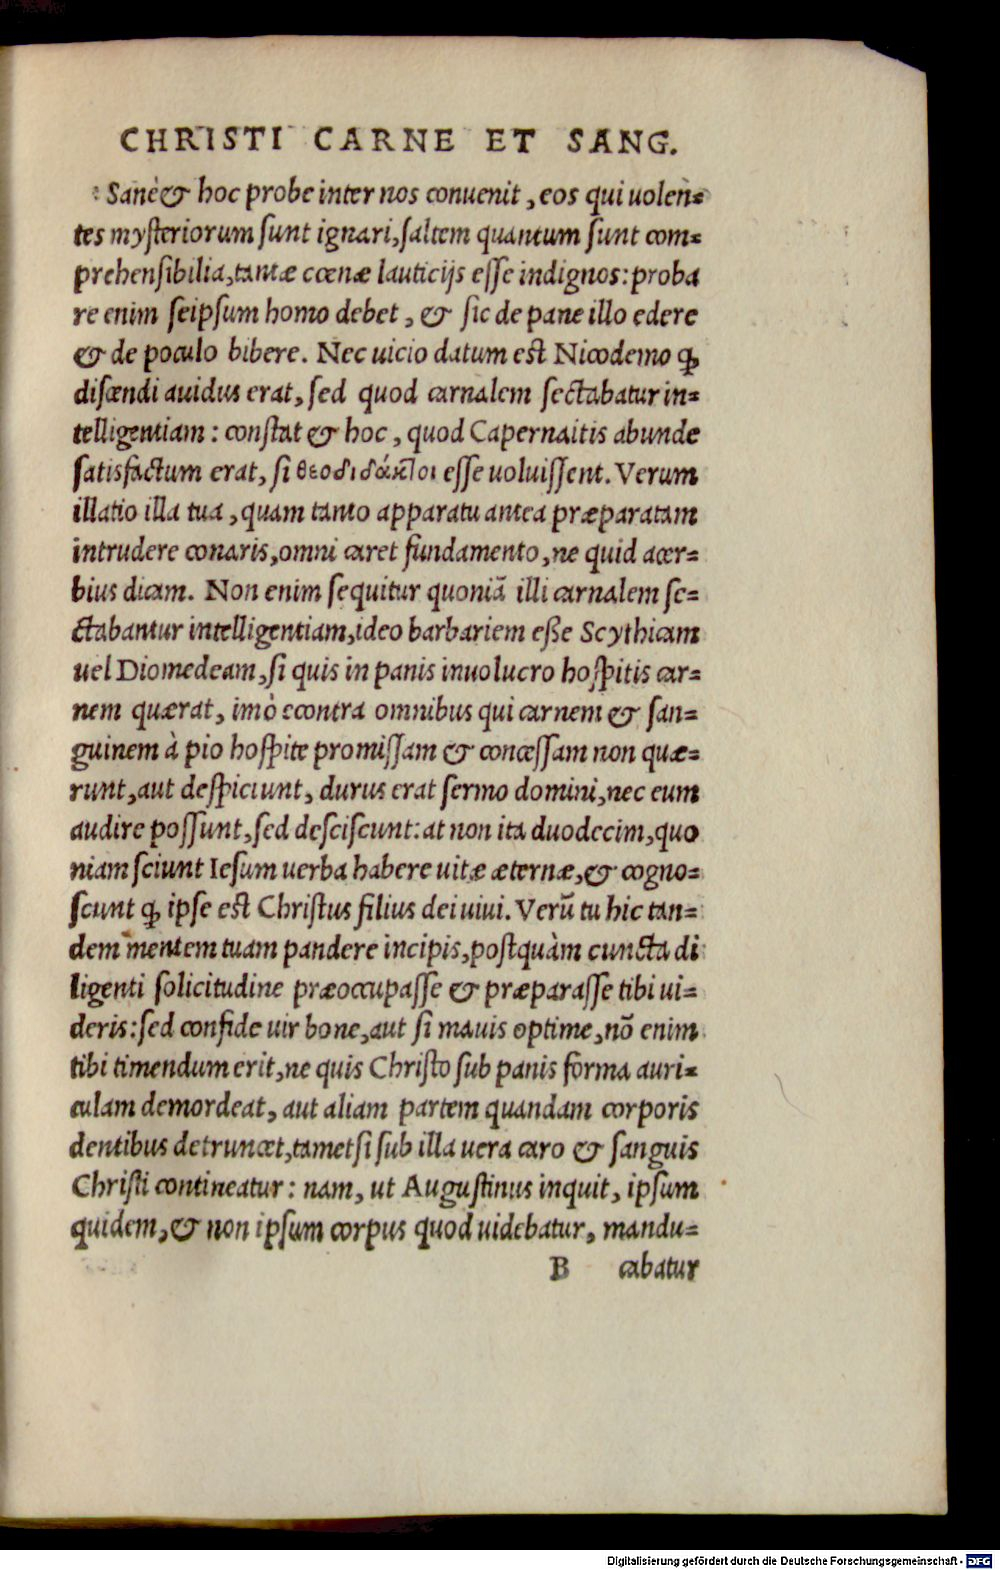 CHRISTI CARNE ET SANG.
Sanè & hoc probe inter nos conuenit, eos qui uolen=
tes mysteriorum sunt ignari, saltem quantum sunt com=
prehensibilia, tantæ cœnæ lauticijs esse indignos: proba
re enim seipsum homo debet, & sic de pane illo edere
& de poculo bibere. Nec uicio datum est Nicodemo ꝙ
discendi auidus erat, sed quod carnalem sectabatur in=
telligentiam: constat & hoc, quod Capernaitis abunde
satisfactum erat, si θεοδιδάκτοι esse uoluissent. Verum
illatio illa tua, quam tanto apparatu antea præparatam
intrudere conaris, omni caret fundamento, ne quid acer=
bius dicam. Non enim sequitur quoniã illi carnalem se=
ctabantur intelligentiam, ideo barbariem eße Scythicam
uel Diomedeam, si quis in panis inuolucro hospitis car=
nem quærat, imò econtra omnibus qui carnem & san=
guinem à pio hospite promissam & concessam non quæ=
runt, aut despiciunt, durus erat sermo domini, nec eum
audire possunt, sed desciscunt: at non ita duodecim, quo
niam sciunt Iesum uerba habere uitæ æternæ, & cogno=
scunt ꝙ ipse est Christus filius dei uiui. Verũ tu hic tan=
dem mentem tuam pandere incipis, postquàm cuncta di
ligenti solicitudine præoccupasse & præparasse tibi ui=
deris: sed confide uir bone, aut si mauis optime, nõ enim
tibi timendum erit, ne quis Christo sub panis forma auri=
culam demordeat, aut aliam partem quandam corporis
dentibus detruncet, tametsi sub illa uera caro & sanguis
Christi contineatur: nam, ut Augustinus inquit, ipsum
quidem, & non ipsum corpus quod uidebatur, mandu=
B cabatur
Digitalisierung gefördert durch die Deutsche Forschungsgemeinschaft - DFG